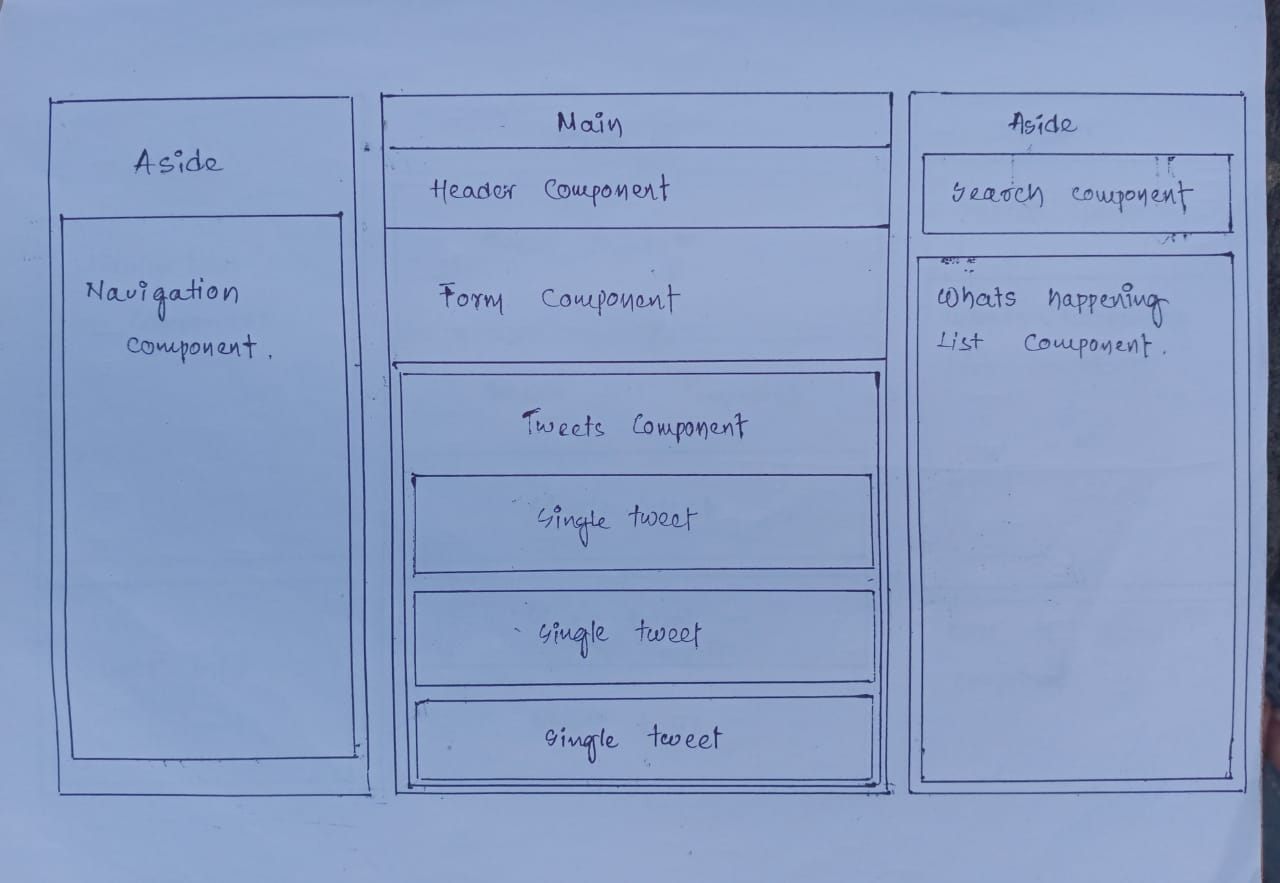 Aside
Navigation
Component.
Main
Header Component
Form Component
Tweets Component
Single tweet
Single tweet
Single tweet
Aside
Search component
Whats happening
List Component.